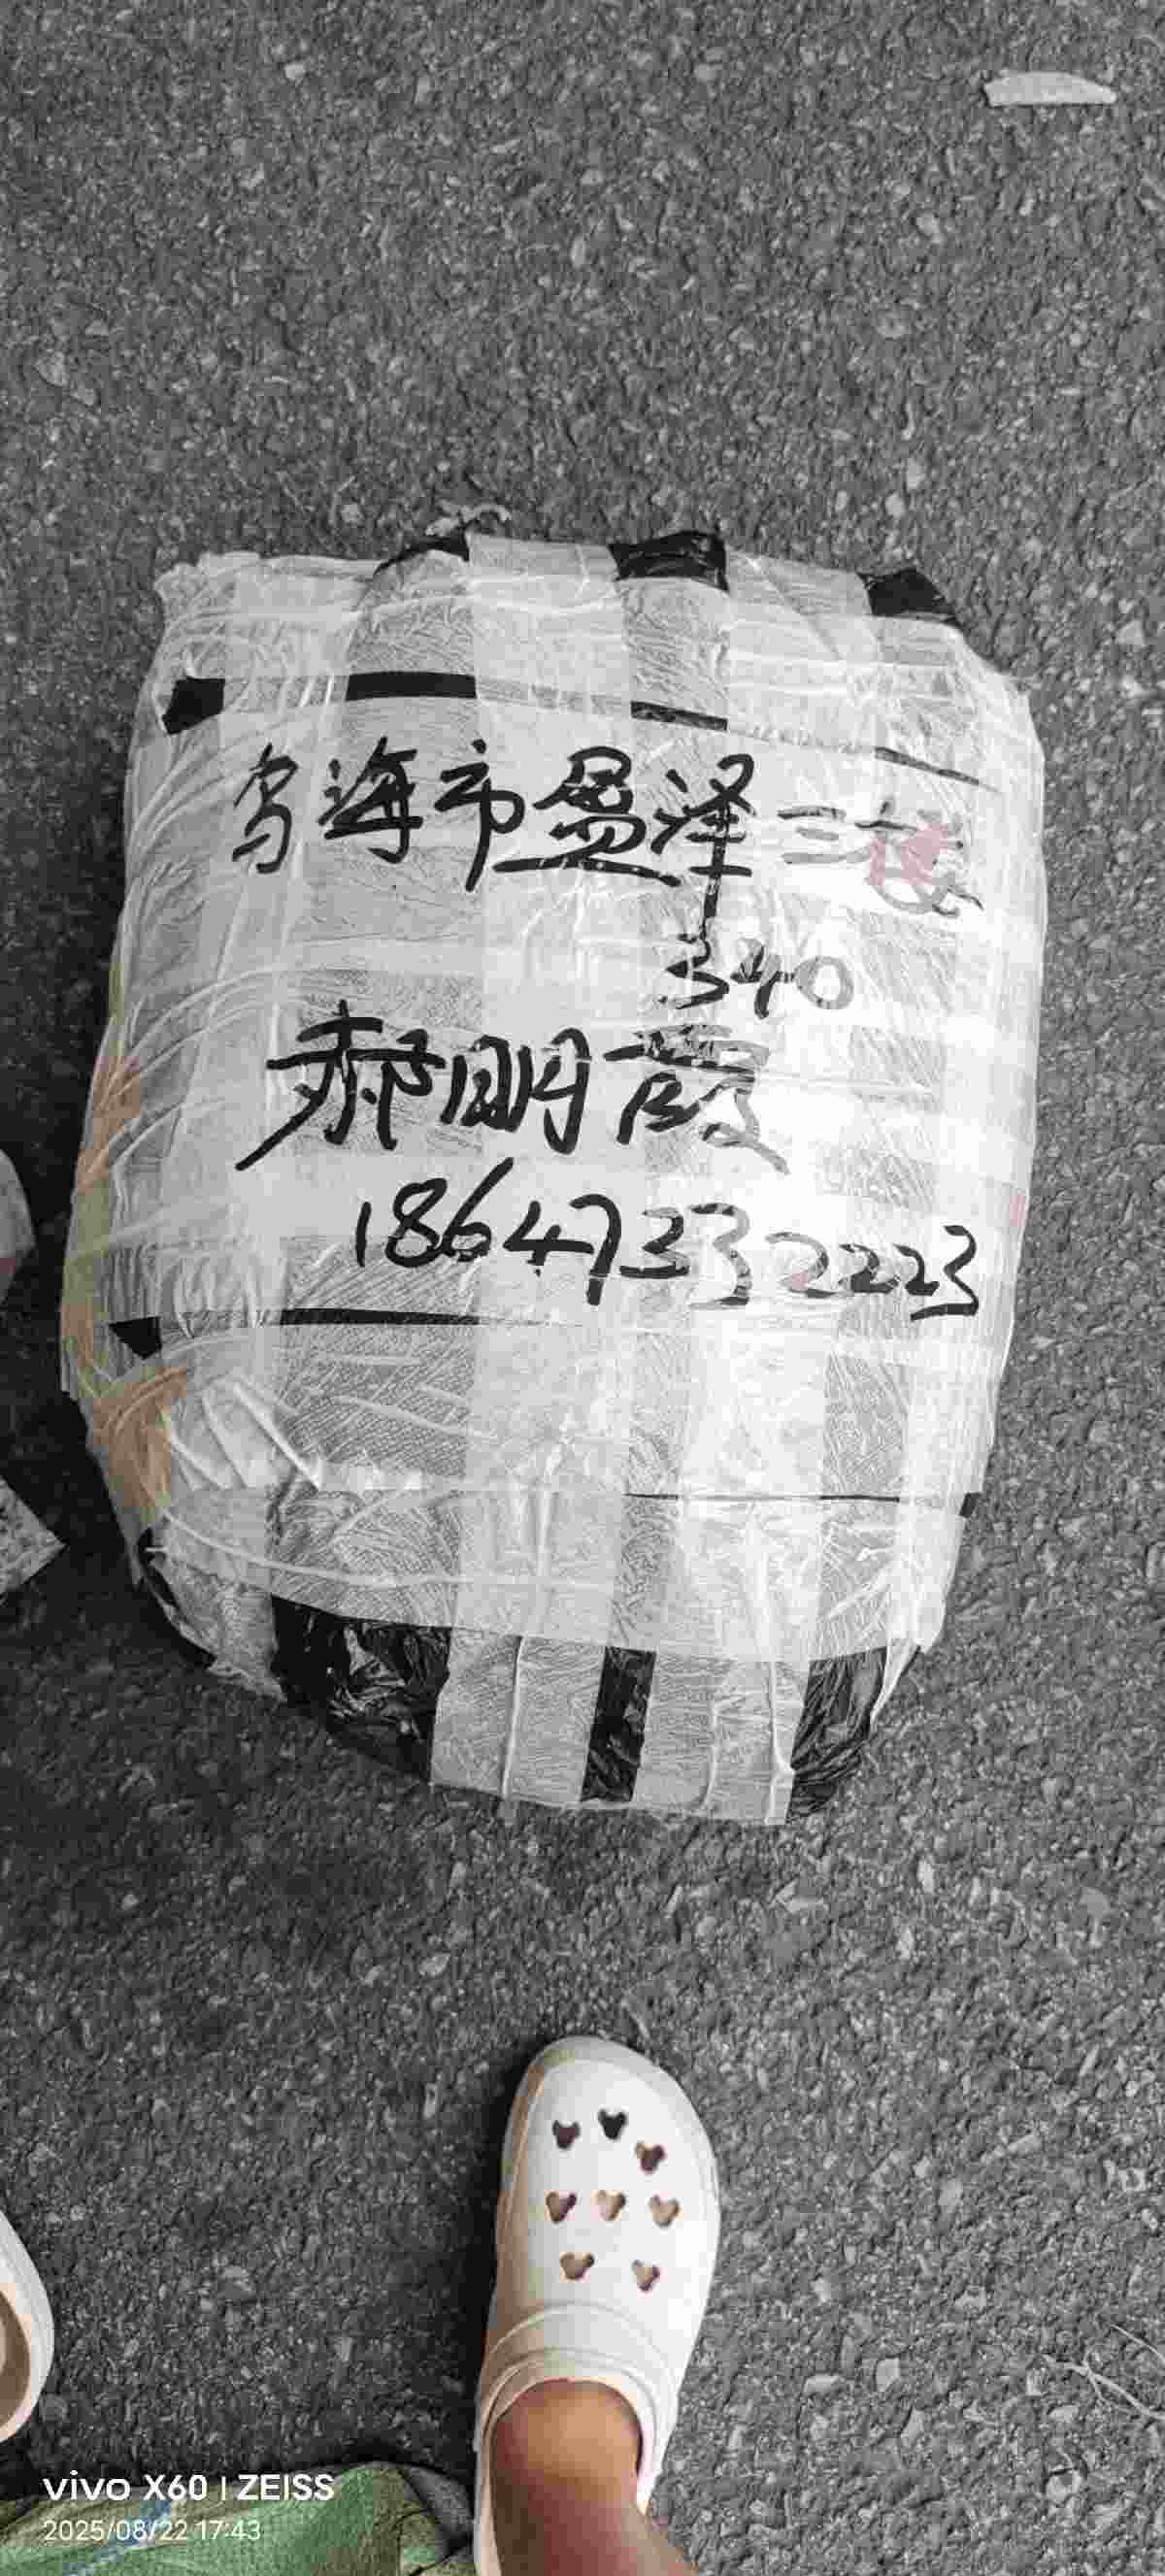 乌海市盈泽三楼
340
郝明霞
18647332223
vivo X60 | ZEISS
2025/08/22 17:43